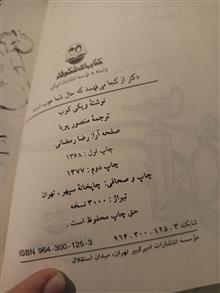 کتابهای شکوفه
وابسته به مؤسسه انتشارات امیرکبیر
دکتر از کجا می‌فهمد که حال شما خوب است
نوشتهٔ ویکی کوب
ترجمهٔ منصور پویا
صفحه آرا: رضا رمضانی
چاپ اول: ۱۳۶۸
چاپ دوم: ۱۳۷۷
چاپ و صحافی: چاپخانهٔ سپهر، تهران
تیراژ: ۳۰۰۰ نسخه
حق چاپ محفوظ است.
شابک ۳-۱۲۵-۳۰۰-۹۶۴
ISBN 964-300-125-3
مؤسسه انتشارات امیرکبیر تهران، میدان استقلال